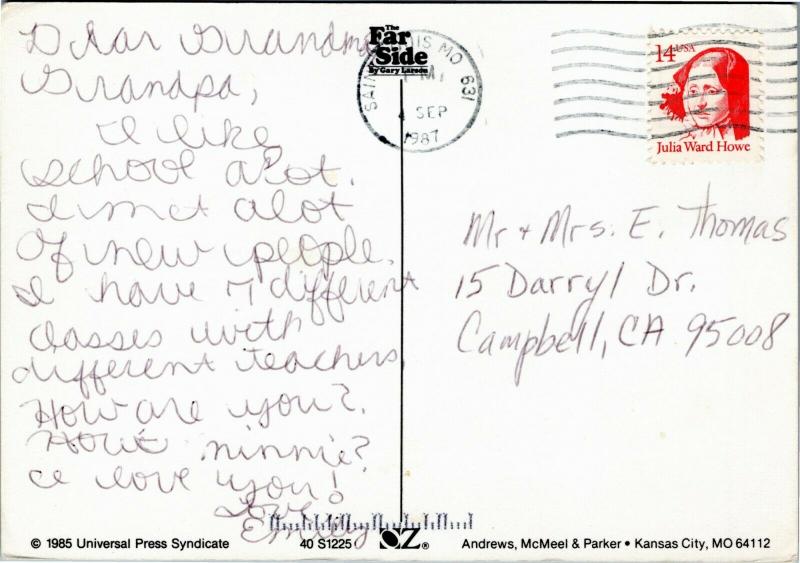 Dear Grandma
Grandpa,
I like
school alot.
I met alot
of new people.
I have 7 different
classes with
different teachers.
How are you?
How's ninnie?
I love you!
Love
Emily
The
Far
Side
By Gary Larson
SAIN IS MO 631
PM
4 SEP
1987
14 USA
Julia Ward Howe
Mr + Mrs. E. Thomas
15 Darryl Dr.
Campbell, CA 95008
© 1985 Universal Press Syndicate
40 S1225
OZ®
Andrews, McMeel & Parker • Kansas City, MO 64112